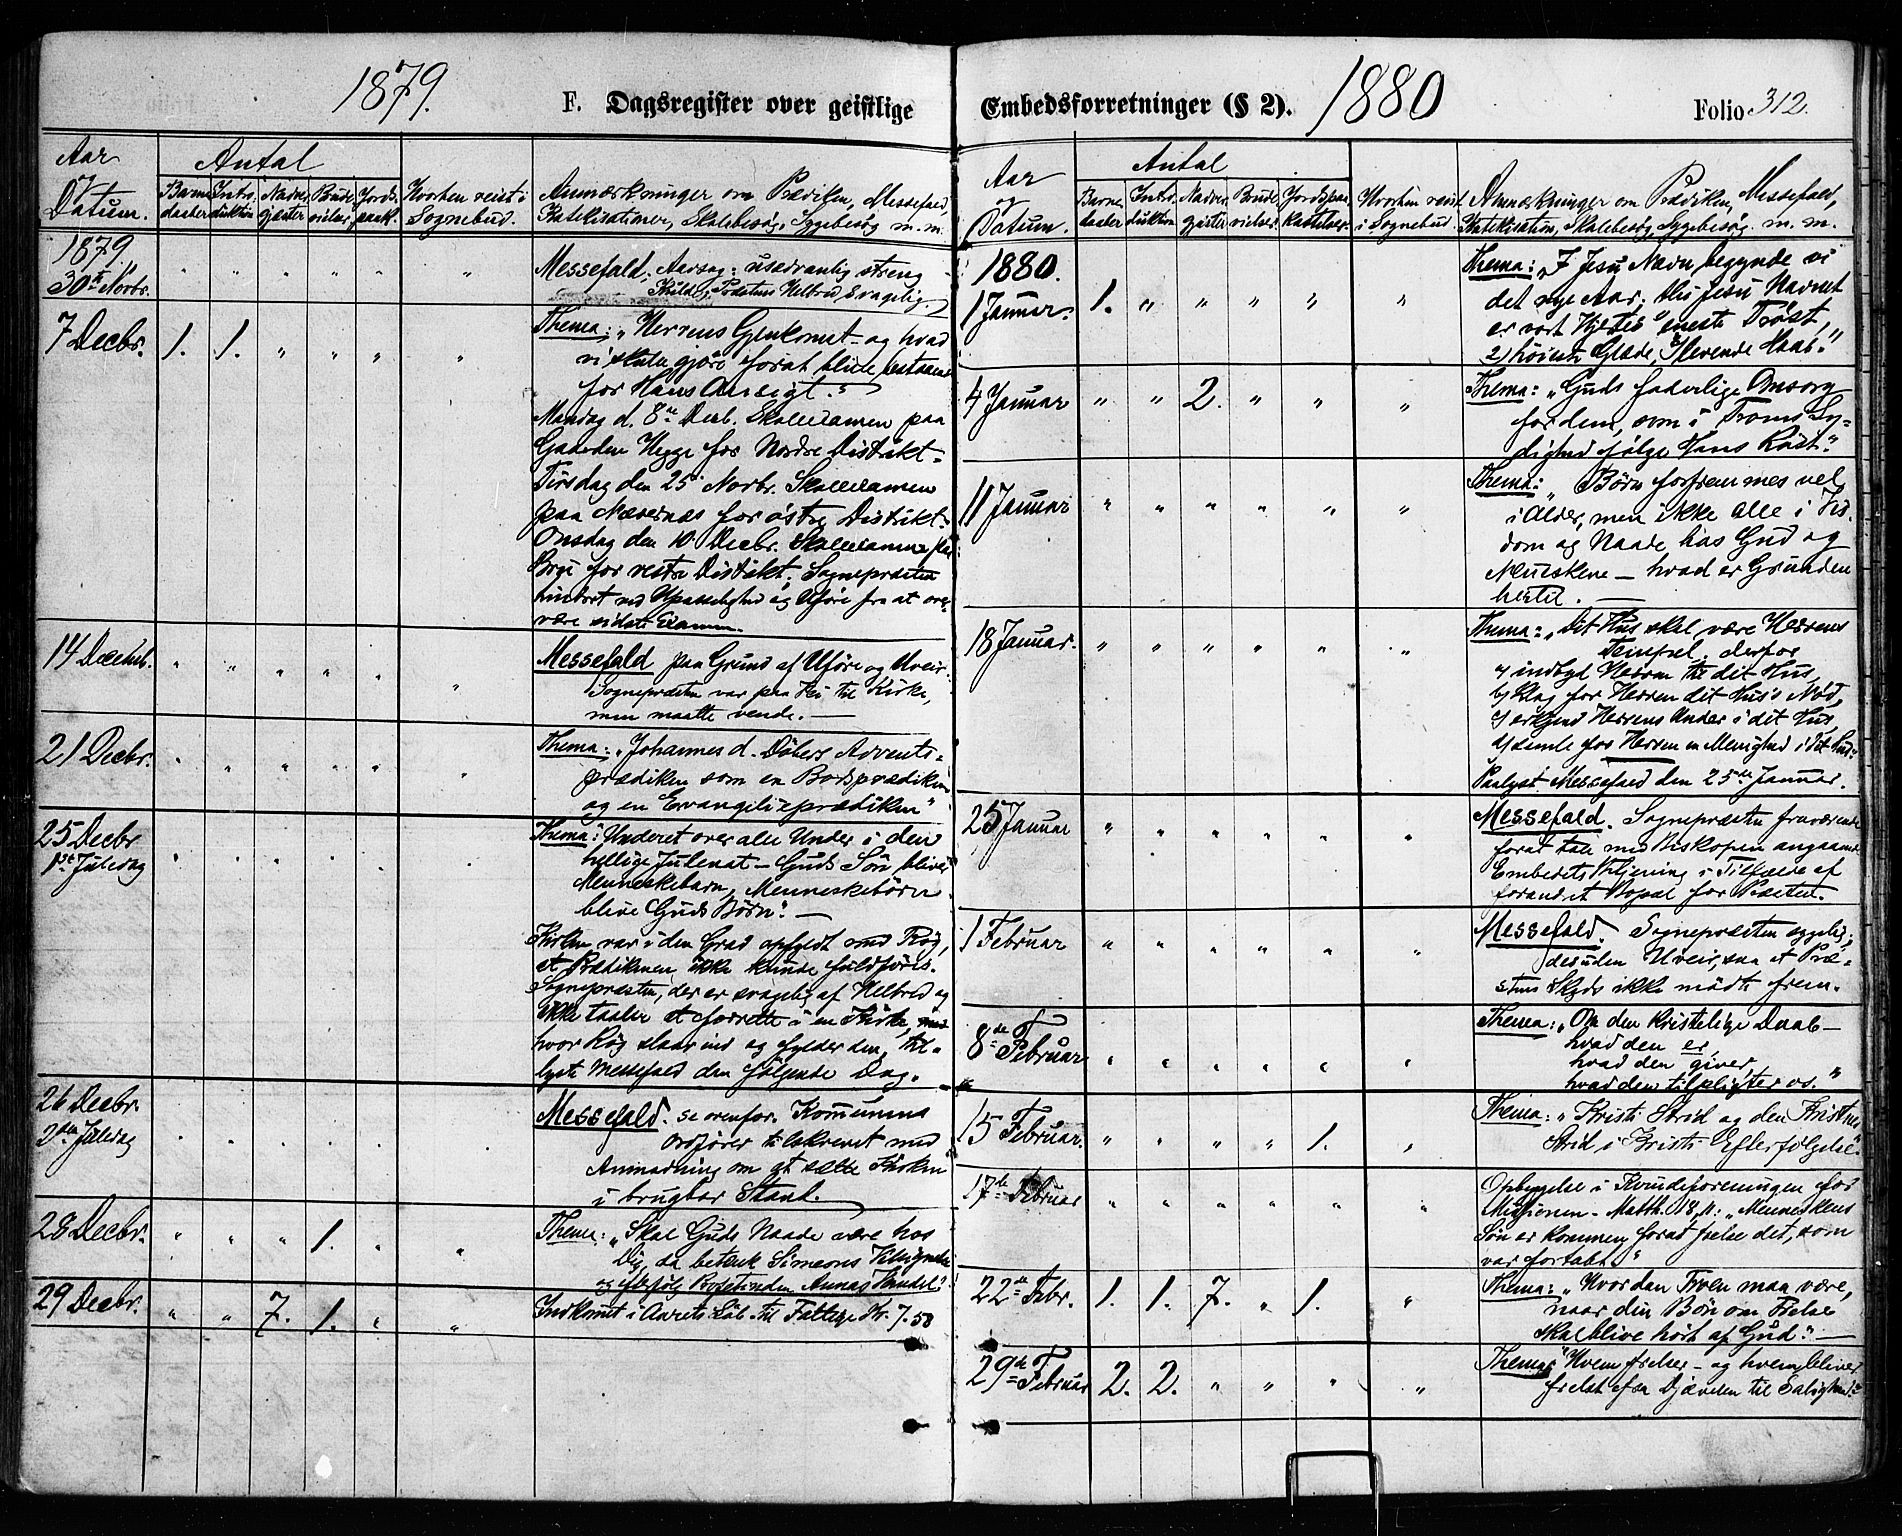 1879.
F. Dagsregister over geistlige
Aar
og
Datum.
Antal
Barne
daaber
Intro
duktion
Nadver
gjester
Brude
vielser
Jords
paak.
Hvorhen reist i
Sognebud.
Anmærkninger om Prædiken, Messefald,
Katekisationer, Skolebesøg, Sygebesøg m. m.
1879.
30te Novbr. " " " " " "
Messefald. Aarsag: usedvanlig streng
Kulde; Prestens Helbred svagelig.
7 Decbr. 1. 1. " " " "
Thema: "Herrens Gjenkomst - og hvad
vi skulle gjøre forat blive bestaaende
for Hans Ansigt."
Mandag d. 8de Decb. Skoleexamen paa
Gaarden Hegge for Nordre Distrikt -
Tirsdag den 25 Novbr. Skoleexamen
paa Nærernæs for østre Distrikt.
Onsdag den 10 Decbr. Skoleexamen paa
Borge for vestre Distrikt; Sognepræsten
hindret ved Upasselighed og Uføre fra at over-
være sidste Examen.
14 Decbr. " " " " " "
Messefald paa Grund af Uføre og Uveir.
Sognepræsten var paa Vei til Kirke,
men maatte vende. —
21 Decbr. " " " " " "
Thema: "Johannes d. Døbers Advents-
prædiken som en Bodsprædiken
og en Evangelieprædiken"
25 Decbr
1ste Juledag " " " " " "
Thema: Underet over alle Under i den
hellige Julenat - Guds Søn bliver
Menneskebarn, Menneskebørn
blive Guds Børn". —
Kirken var i den Grad opfyldt med Røg,
at Prædikenen ikke kunde fuldføres.
Sognepræsten, der er svagelig af Helbred og
ikke taaler at forrette i en Kirke,
hvor Røg slaar ind og fylder den, til-
lyste Messefald den følgende Dag.
26 Decbr.
2den Juledag " " " " " "
Messefald. se ovenfor. Kommunens
Ordfører tilskrevet med
Anmodning om at sætte Kirken
i brugbar Stand.
28 Decbr. " " " 1. " "
Thema: "Skal Guds Naade være hos
Dig, da betænk Simeons Velsignelse
og efterfølg Annas Vandel."
29 Decbr. " " 7. 1. " "
Indkomst i Aarets Løb til Fattige Kr. 7.58
Embedsforretninger (§ 2). 1880
Folio 312.
Aar
og
Datum.
Antal
Barne
daaber
Intro
duktion
Nadver
gjester
Brude
vielser
Jordspaa
kastelser
Hvorhen reist
i Sognebud.
Anmærkninger om Prædiken, Messefald,
Katekisation, Skolebesøg, Sygebesøg m. m.
1880.
1 Januar. 1. " " " " "
Thema: "I Jesu Navn begynde vi
det nye Aar; thi Jesu Navnet
er vort Hjertes eneste Trøst,
2) høieste Glæde, 3) levende Haab."
4 Januar " " 2. " " "
Thema: "Guds faderlige Omsorg
for dem, som i Troens Ly-
dighed følge Hans Røst."
11 Januar " " " " " "
Thema: "Børn forfremmes vel
i Alder, men ikke alle i Vis-
dom og Naade hos Gud og
Menneskene — hvad er Grunden
hertil. —
18 Januar. " " " " " "
Thema: "Dit Hus skal være Herrens
Tempel, derfor
a) indbyd Herren til dit Hus,
b) klag for Herren dit Hus's Nød,
c) erkjend Herrens Under i dit Hus,
d) samle for Herren en Menighed i dit Hus."
Paalyst Messefald den 25de Januar.
25 Januar " " " " " "
Messefald. Sognepræsten fraværende
forat tale med Biskopen angaaende
Embedets Betjening i Tilfælde af
forandret Bopæl for Præsten.
1 Februar " " " " " "
Messefald. Sognepræsten sygelig;
desuden Uveir, saa at Præ-
stens Skyds ikke mødte frem.
8de Februar " " " " " "
Thema: "Om den kristelige Daab —
hvad den er,
hvad den giver,
hvad den tilpligter os."
15 Februar. " " " " 1. "
Thema: "Kristi Strid og den Kristnes
Strid i Kristi Efterfølgelse."
17de Februar " " " " " "
Opbyggelse i Kvindeforeningen for
Missionen - Matth. 18,11: "Menneskens
Søn er kommen forat frelse det, som
var fortabt."
22de Febr. 1. 1. 7. " 1. "
Thema: "Hvordan Troen maa være,
naar din Bøn om Frelse
skal blive hørt af Gud." —
29de Februar 2. 2. " " " "
Thema: "Hvem frelser - og hvem bliver
frelst fra Djævelen til Salighed."